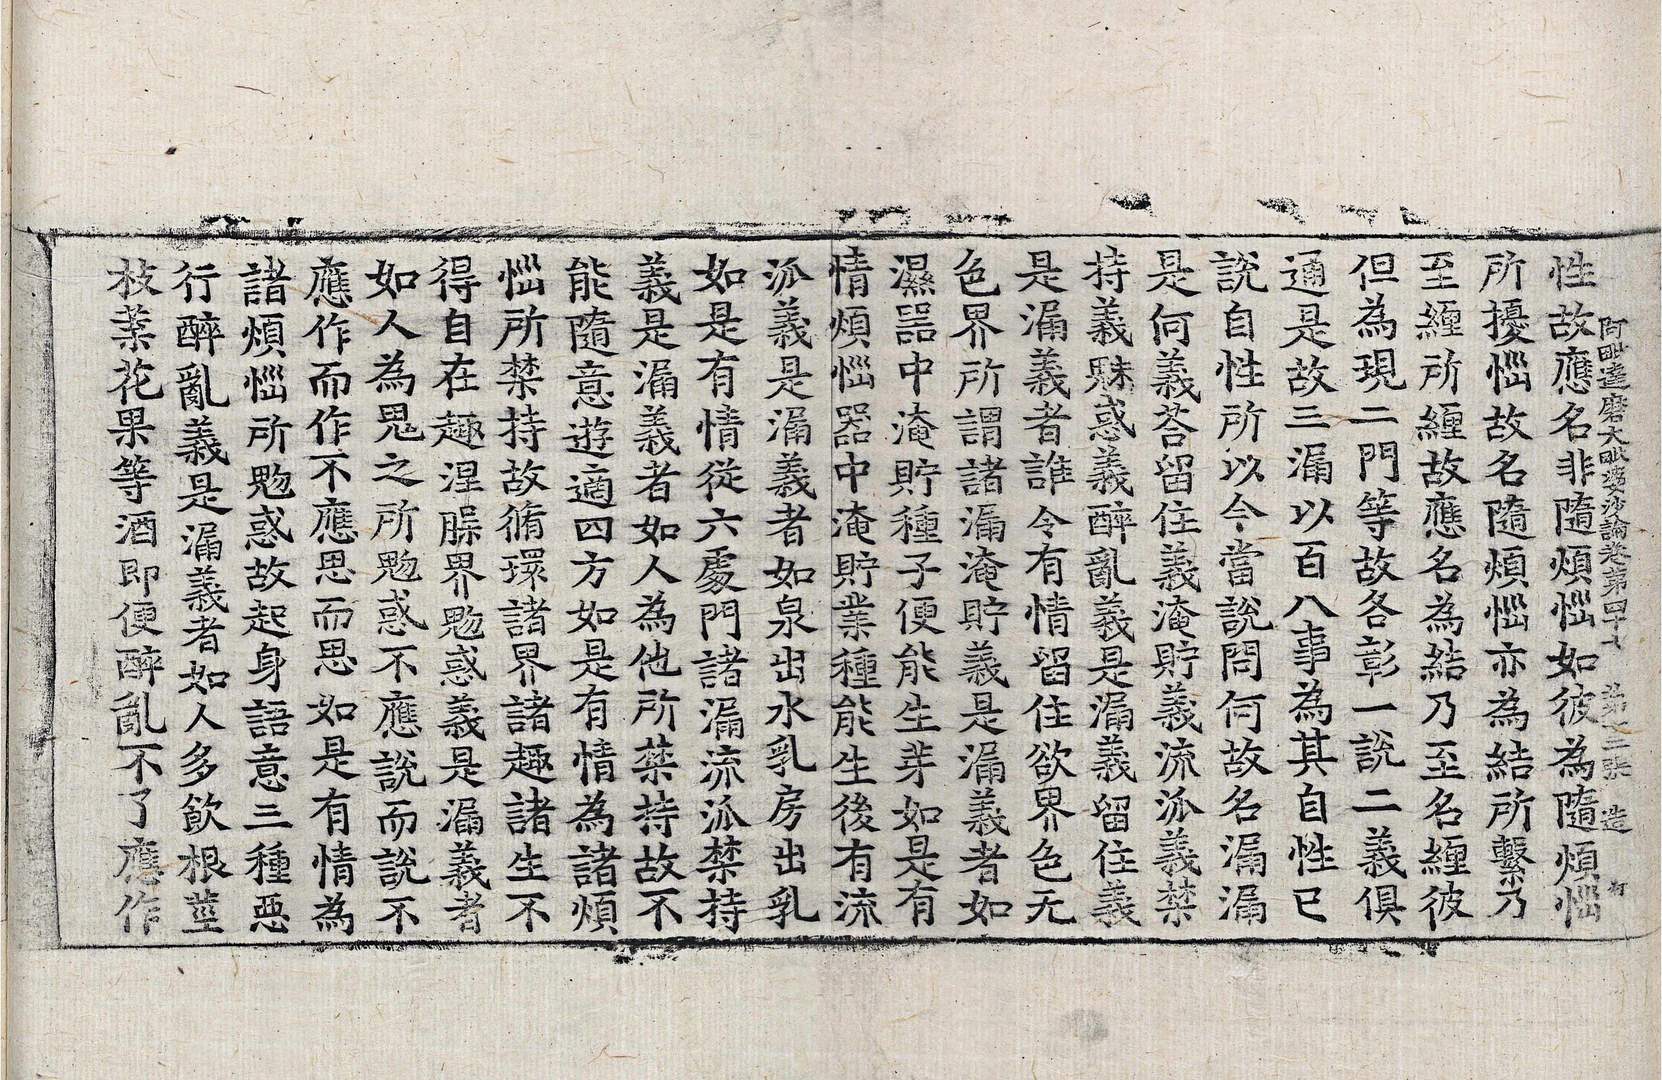 阿毗達磨大毗婆沙論卷第四十七 第十二張 造
性故應名非隨煩惱如彼為隨煩惱
所擾惱故名隨煩惱亦為結所繫乃
至纏所纏故應名為結乃至名纏彼
但為現二門等故各彰一說二義俱
通是故三漏以百八事為其自性已
說自性所以今當說問何故名漏漏
是何義荅留住義淹貯義流泒義禁
持義魅惑義醉亂義是漏義留住義
是漏義者誰令有情留住欲界色无
色界所謂諸漏淹貯義是漏義者如
濕器中淹貯種子便能生芽如是有
情煩惱器中淹貯業種能生後有流
泒義是漏義者如泉出水乳房出乳
如是有情從六處門諸漏流泒禁持
義是漏義者如人為他所禁持故不
能隨意遊適四方如是有情為諸煩
惱所禁持故循環諸界諸趣諸生不
得自在趣涅槃界魅惑義是漏義者
如人為鬼之所魅惑不應說而說不
應作而作不應思而思如是有情為
諸煩惱所魅惑故起身語意三種惡
行醉亂義是漏義者如人多飲根莖
枝葉花果等酒即便醉亂不了應作